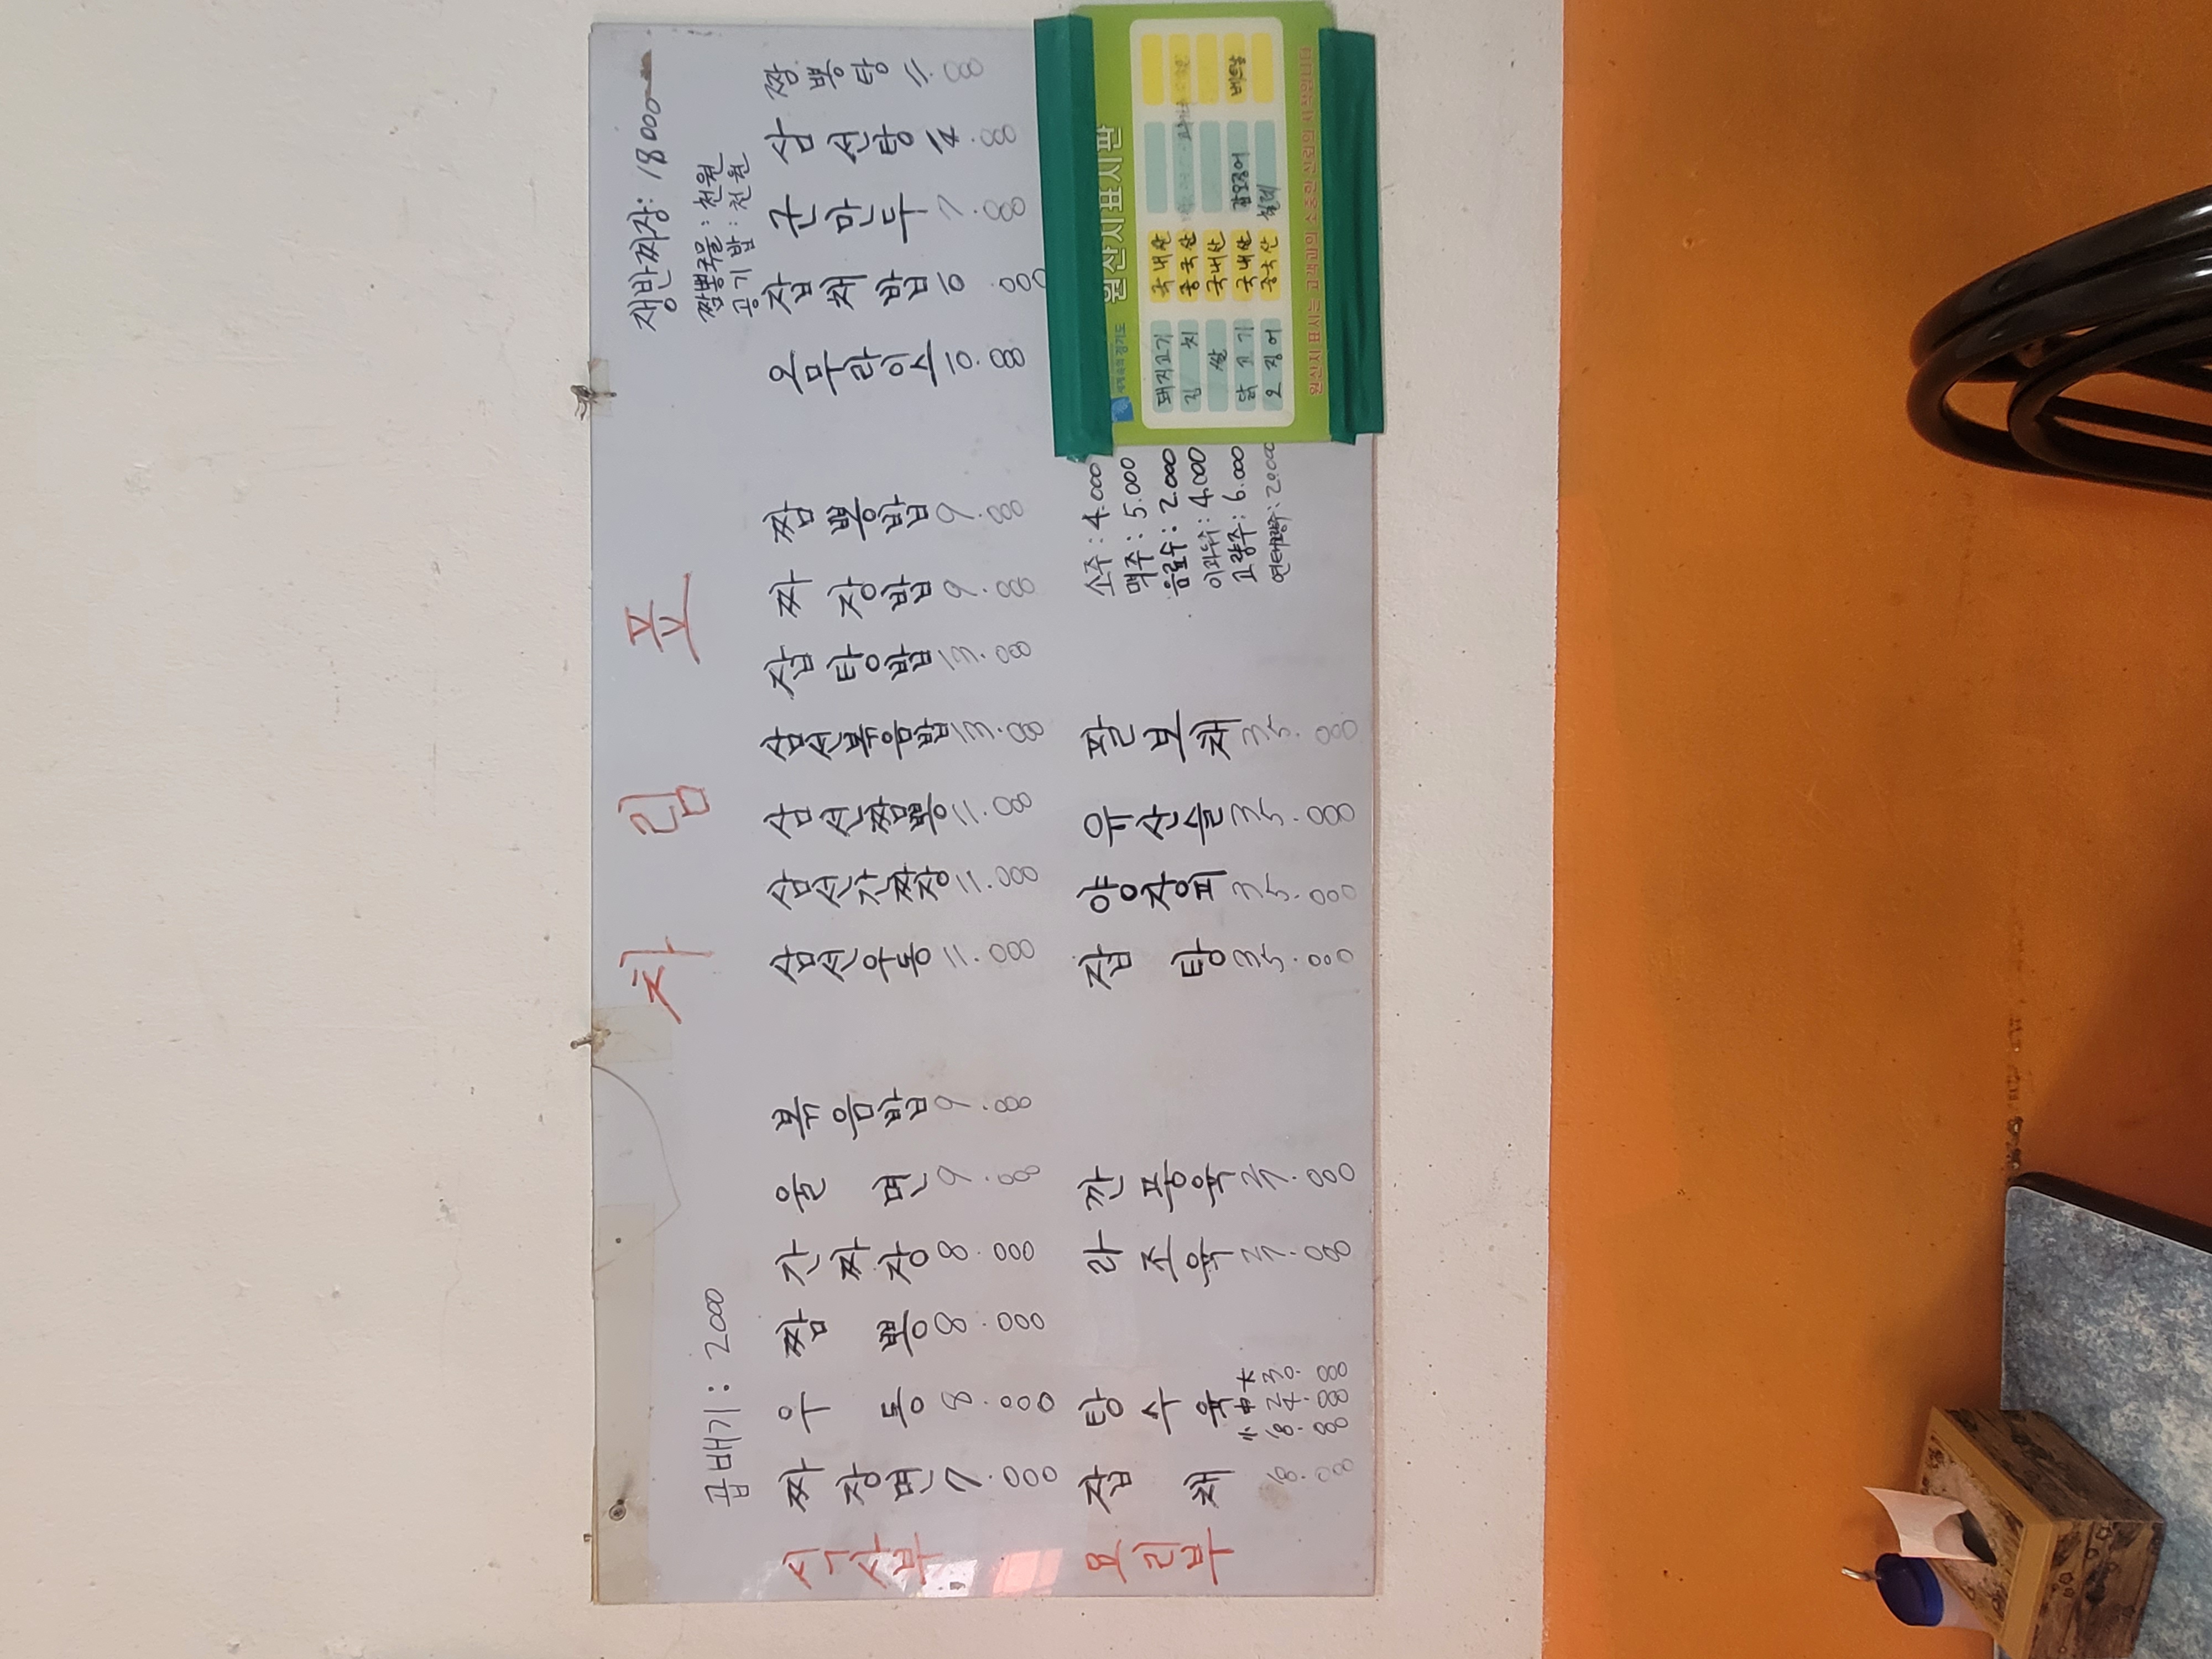 차림표
곱배기: 2000
쟁반짜장: 18000
짬뽕국물: 천원
공기밥: 천원
식사부
짜장면 7.000
우동 8.000
짬뽕 8.000
간짜장 8.000
울면 9.000
볶음밥 9.000
삼선우동 11.000
삼선간짜장 11.000
삼선짬뽕 11.000
삼선볶음밥 13.000
잡탕밥 13.000
짜장밥 9.000
짬뽕밥 9.000
오무라이스 10.000
잡채밥 10.000
군만두 7.000
삼선탕 14.000
짬뽕탕 11.000
요리부
잡채 18.000
탕수육 小 18.000
中 24.000
大 30.000
라조육 27.000
깐풍육 27.000
잡탕 35.000
양장피 35.000
유산슬 35.000
팔보채 35.000
소주: 4.000
맥주: 5.000
음료수: 2.000
이과두주: 4.000
고량주: 6.000
연태고량주: 20.000
세계속의 경기도
원산지표시판
돼지고기 국내산
김치 중국산
쌀 국내산
닭고기 국내산 갑오징어 베트남
오징어 중국산 칠레
원산지 표시는 고객과의 소중한 신뢰의 시작입니다